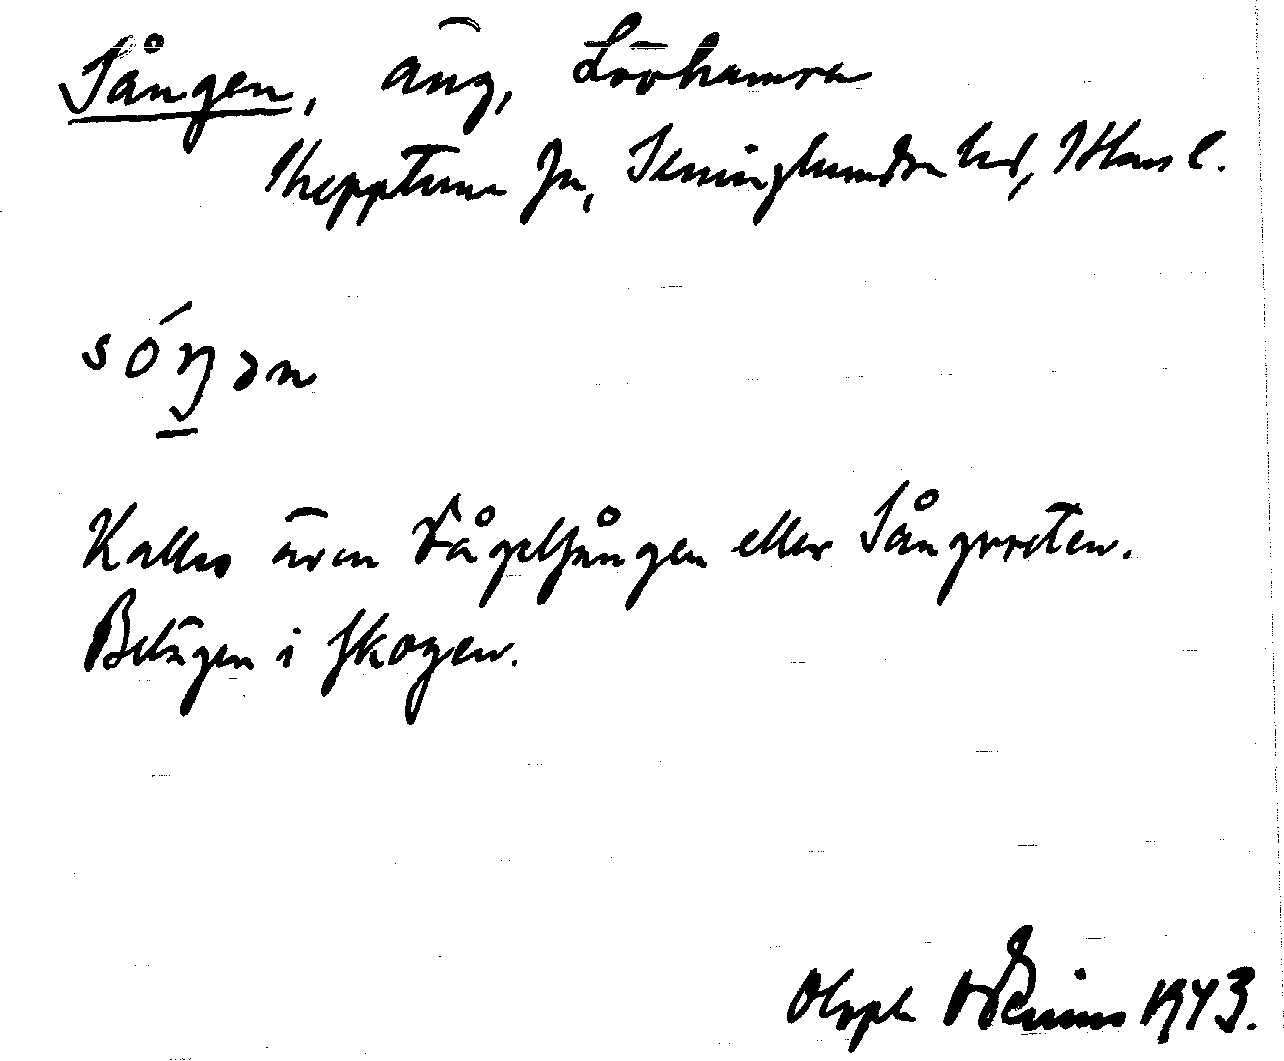 Sången, äng, Lövhamra
Skepptuna sn, Seminghundra hd, Sthms l.
sóŋən
Kallas även Fågelsången eller Sångroten.
Belägen i skogen.
Oloph Odenius 1943.